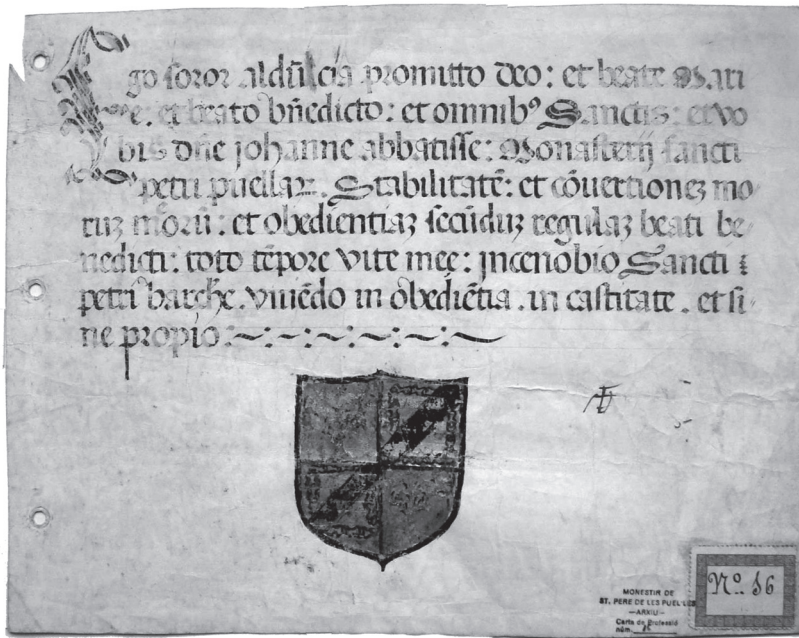 Ego soror aldu̅cia promitto deo: et beate Mari
e. et beato bn̅edicto: et omnibꝰ Sanctis: et vo
bis dn̅e johanne abbatisse: Monasterij sancti
petri puellaꝝ. Stabilitate̅: et co̅uertioneꝫ mo
ruꝫ moru̅: et obedientiaꝫ secu̅duꝫ regulaꝫ beati be
nedicti: toto te̅pore vite meę: jncenobio Sancti
petri barche. viue̅do in obedie̅tia. in castitate. et si
ne propio:~:~:~:~:~:~
Nº. 16
MONESTIR DE
ST. PERE DE LES PUEL·LES
—ARXIU—
Carta de Professió
núm.